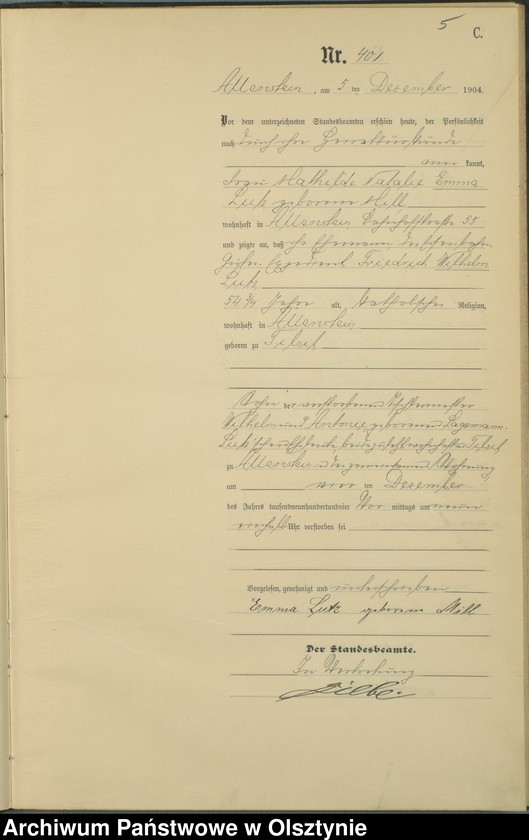 5
C.
Nr. 401
Allenstein, am 5 ten Dezember 1904.
Vor dem unterzeichneten Standesbeamten erschien heute, der Persönlichkeit
nach durch ihre Heiratsurkunde
aner kannt,
Frau Mathilde Natalie Emma
Lutz geborene Mill
wohnhaft in Allenstein Bahnhofstraße 55
und zeigte an, daß ihr Ehemann, der Eisenbahn
Güter Expedient Friedrich Wilhelm
Lutz
54 3/4 Jahre alt, katholischer Religion,
wohnhaft in Allenstein
geboren zu Tilsit
Sohn des verstorbenen
Wilhelm und geborenen
Lutz beide zuletzt wohnhaft in Tilsit
zu Allenstein in der gemeinsamen Wohnung
am vier ten Dezember
des Jahres tausendneunhundertundvier Vor mittags um neun
einhalb Uhr verstorben sei
Vorgelesen, genehmigt und unterschrieben
Emma Lutz geborene Mill
Der Standesbeamte.
In Vertretung
Archiwum Państwowe w Olsztynie